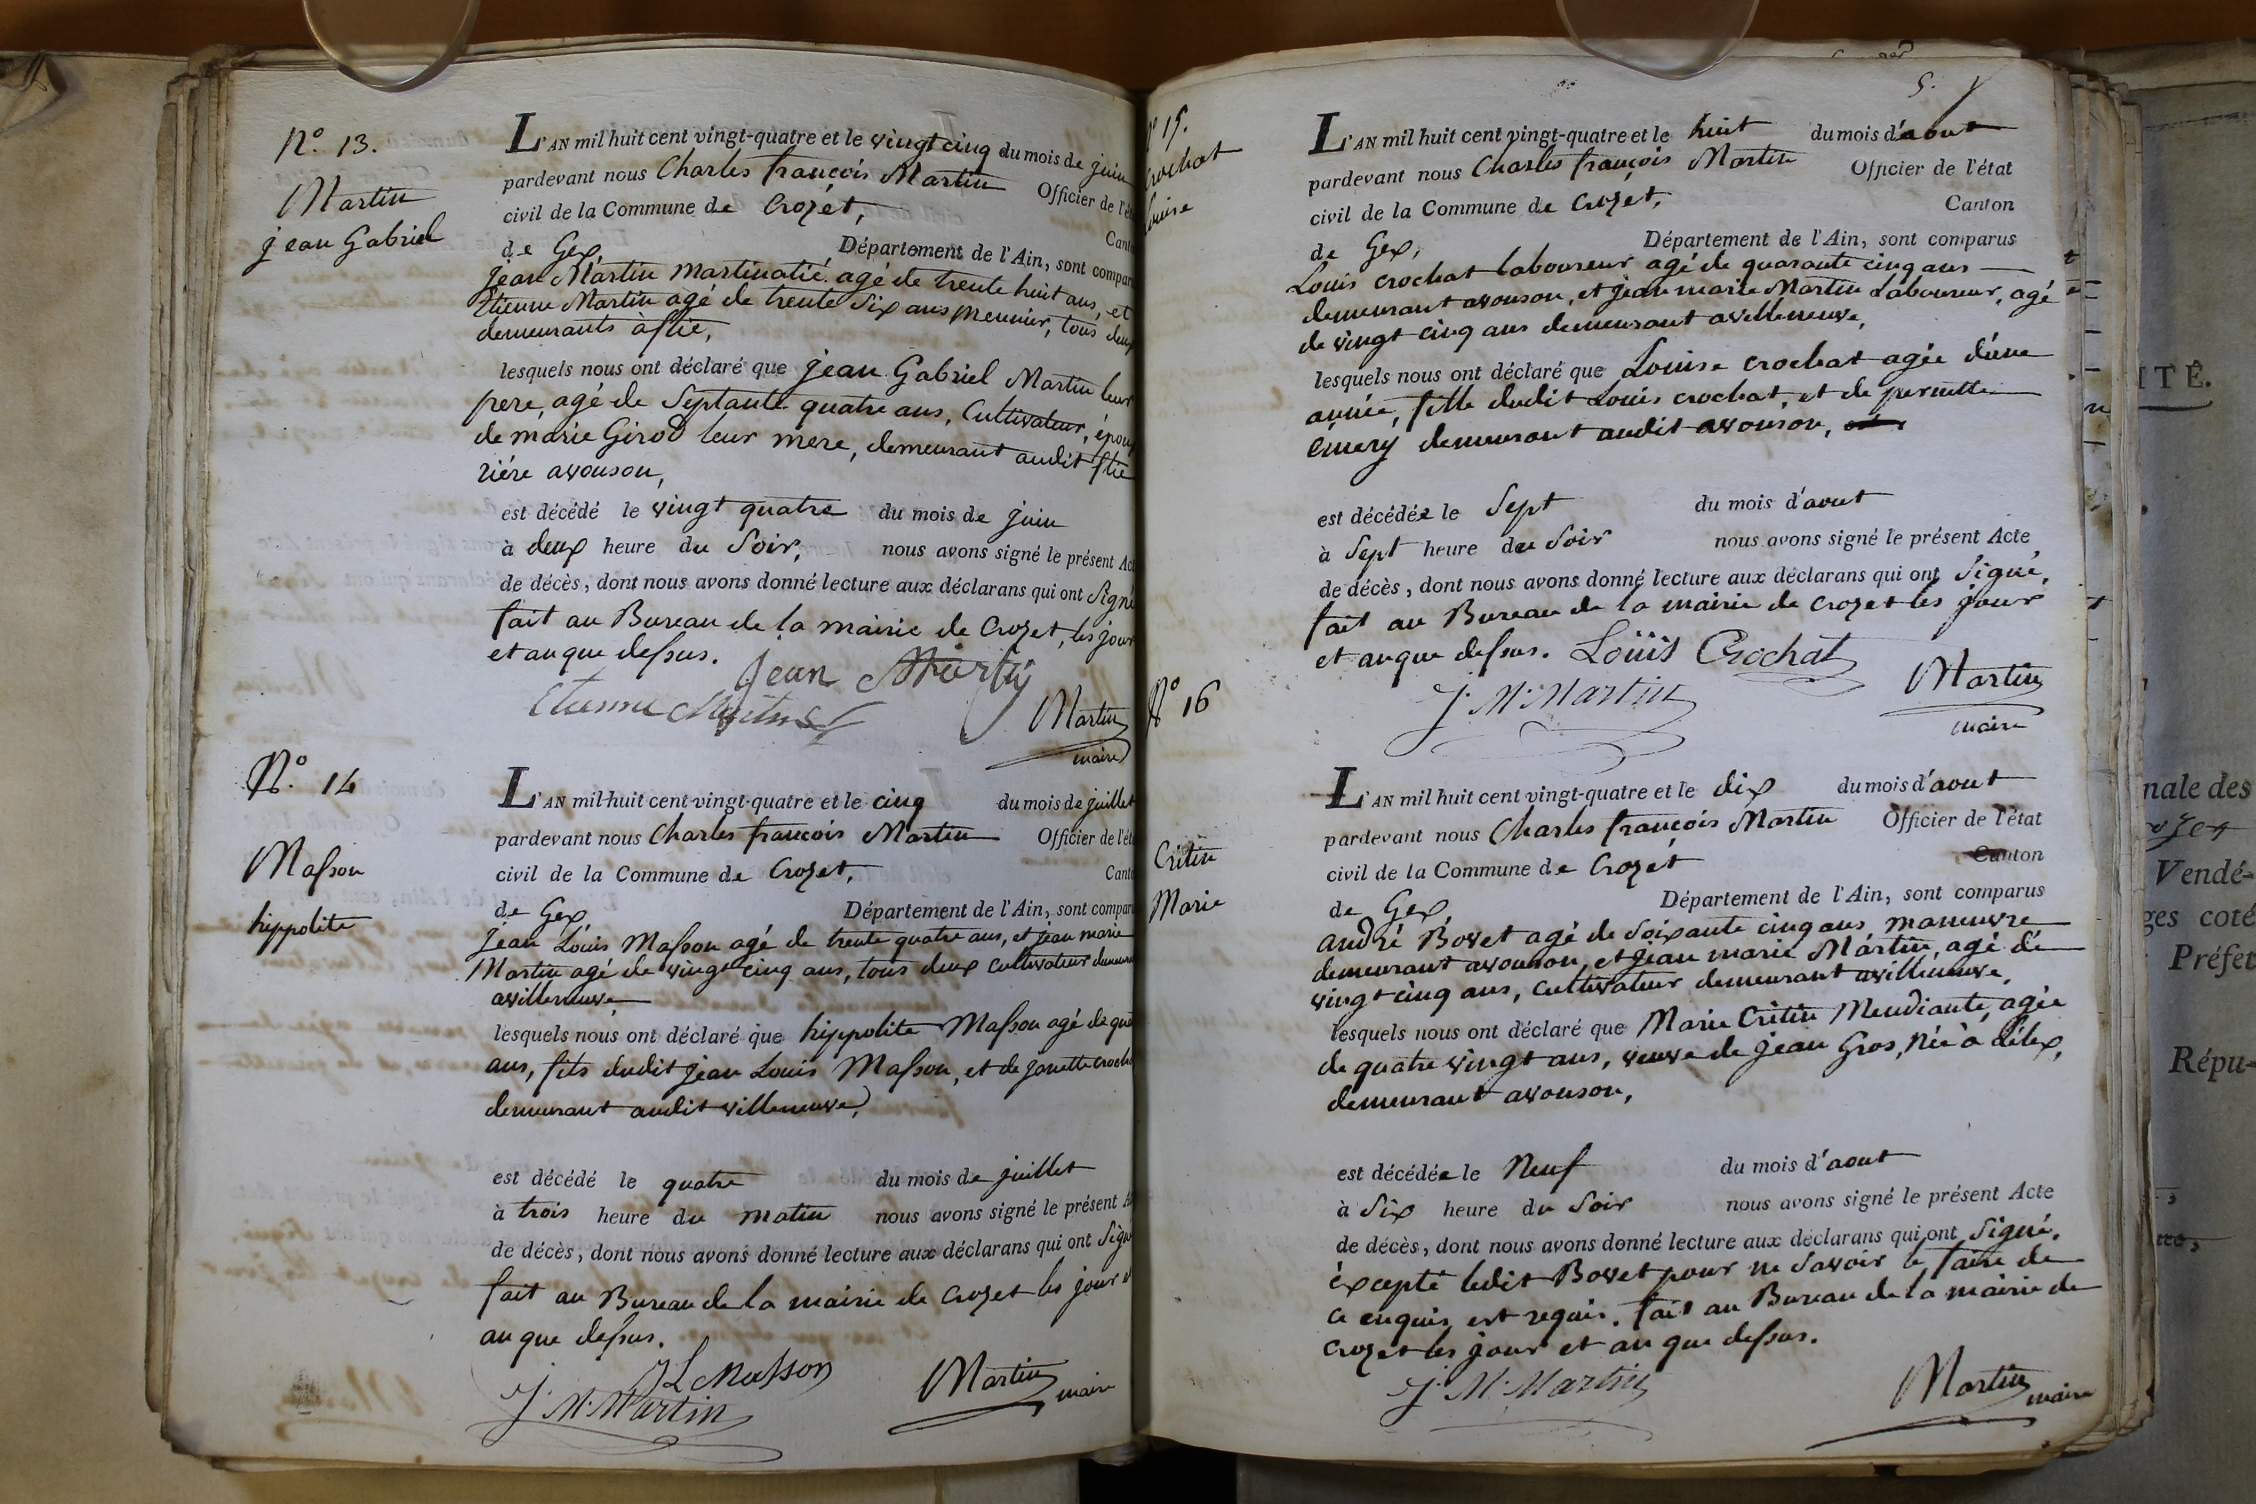 N.° 13.
Martin
jean Gabriel
L'AN mil huit cent vingt-quatre et le vingt cinq du mois de juin
pardevant nous Charles françois Martin Officier de l'ét
civil de la Commune de Crozet, Cant
de Gex, Département de l'Ain, sont compar
jean Martin martinatié agé de trente huit ans, et
Etienne Martin agé de trente Six ans meunier, tous deux
demeurants à flie,
lesquels nous ont déclaré que jean Gabriel Martin leur
pere, agé de Septante quatre ans, Cultivateur, épou
de marie Girod leur mere, demeurant audit flie
riére avouson,
est décédé le vingt quatre du mois de juin
à deux heure du Soir, nous avons signé le présent Act
de décès, dont nous avons donné lecture aux déclarans qui ont Signé
fait au Bureau de la mairie de Crozet, les jour
et an que dessus. Jean Martin
Etienne Martin
Martin
maire
N.° 14
Masson
hippolite
L'AN mil huit cent vingt-quatre et le cinq du mois de juillet
pardevant nous Charles françois Martin Officier de l'ét
civil de la Commune de Crozet, Cant
de Gex, Département de l'Ain, sont compar
jean Louis Masson agé de trente quatre ans, et jean marie
Martin agé de vingt cinq ans, tous deux cultivateur demeura
avilleneuve
lesquels nous ont déclaré que hippolite Masson agé de qua
ans, fils dudit jean Louis Masson, et de jonette croch
demeurant audit villeneuve,
est décédé le quatre du mois de juillet
à trois heure du matin nous avons signé le présent A
de décès, dont nous avons donné lecture aux déclarans qui ont Sign
fait au Bureau de la mairie de Crozet les jour et
an que dessus.
J L Masson
J. M. Martin
Martin
maire
5.
N° 15.
Crochat
Louise
L'AN mil huit cent vingt-quatre et le huit du mois d'aout
pardevant nous Charles françois Martin Officier de l'état
civil de la Commune de Crozet, Canton
de Gex, Département de l'Ain, sont comparus
Louis crochat laboureur agé de quarante cinq ans
demeurant avouson, et jean marie Martin Laboureur, agé
de vingt cinq ans demeurant avilleneuve,
lesquels nous ont déclaré que Louise crochat agée d'une
année, fille dudit Louis crochat, et de pernette
Emery demeurant audit avouson,
est décédée le Sept du mois d'aout
à Sept heure du Soir nous avons signé le présent Acte
de décès, dont nous avons donné lecture aux déclarans qui ont Signé,
fait au Bureau de la mairie de crozet les jour
et an que dessus. Loüis Crochat
J. M. Martin
Martin
maire
N° 16
Critin
Marie
L'AN mil huit cent vingt-quatre et le dix du mois d'aout
pardevant nous Charles françois Martin Officier de l'état
civil de la Commune de Crozet Canton
de Gex Département de l'Ain, sont comparus
andré Bovet agé de Soixante cinq ans, maneuvre
demeurant avouson, et jean marie Martin, agé de
vingt cinq ans, cultivateur demeurant avilleneuve,
lesquels nous ont déclaré que Marie Critin Mendiante, agée
de quatre vingt ans, veuve de jean Gros, Née à Lélex,
demeurant avouson,
est décédée le Neuf du mois d'aout
à Six heure du Soir nous avons signé le présent Acte
de décès, dont nous avons donné lecture aux déclarans qui ont Signé,
éxcepté ledit Bovet pour ne Savoir le faire de
ce enquis et requis. fait au Bureau de la mairie de
crozet les jour et an que dessus.
J. M. Martin
Martin
maire
ITÉ.
nale des
Vendé-
ges coté
Préfet
Répu-